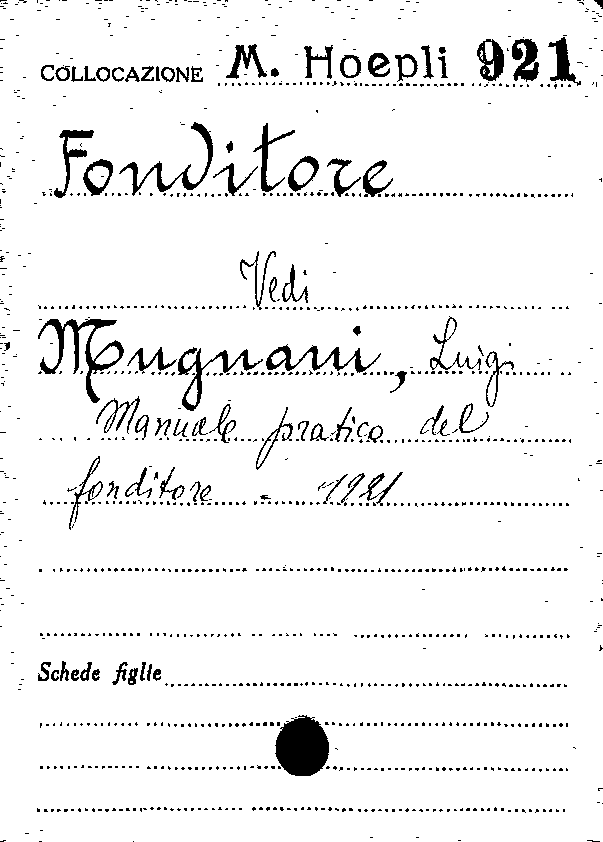 COLLOCAZIONE M. Hoepli 921
Fonditore
Vedi
Mugnani, Luigi
Manuale pratico del
fonditore - 1921
Schede figlie